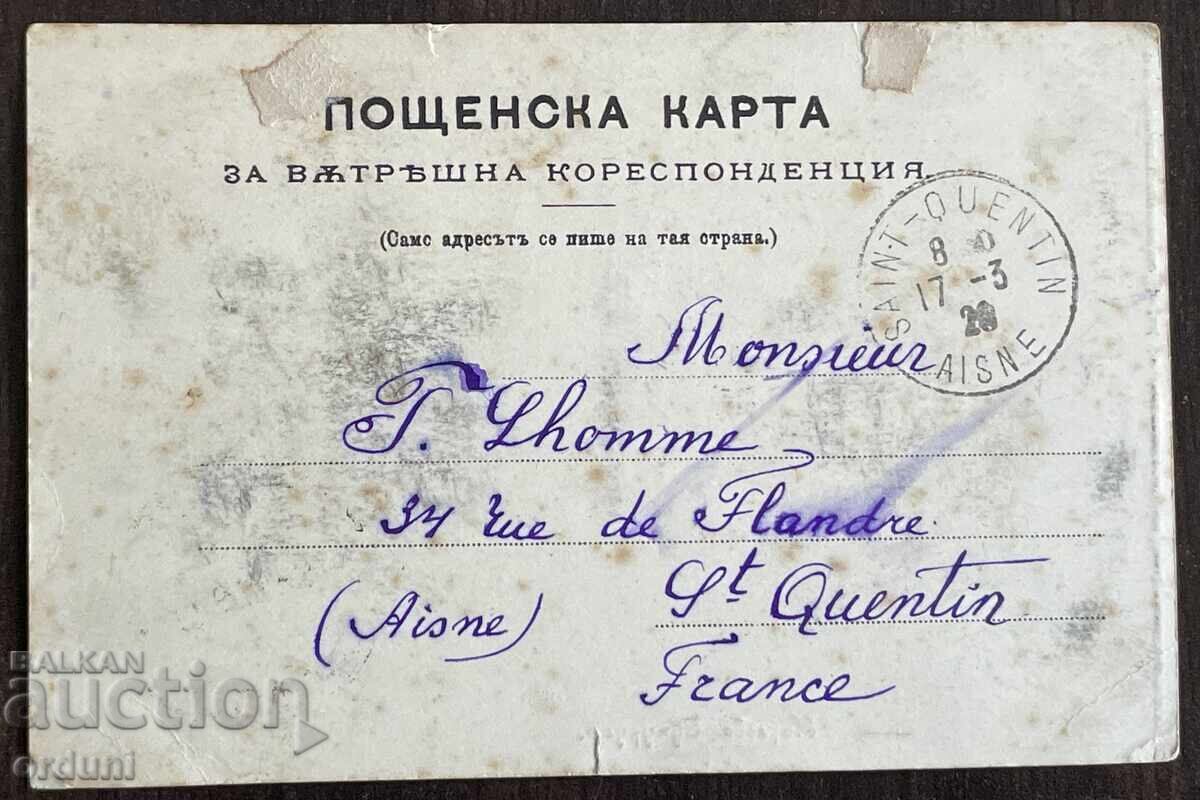 ПОЩЕНСКА КАРТА
ЗА ВѪТРѢШНА КОРЕСПОНДЕНЦИЯ.
(Само адресътъ се пише на тая страна.)
SAINT-QUENTIN
8
17 -3
AISNE
Monsieur
T. Lhomme
34 rue de Flandre
(Aisne) St Quentin
France
BALKAN
auction
orduni